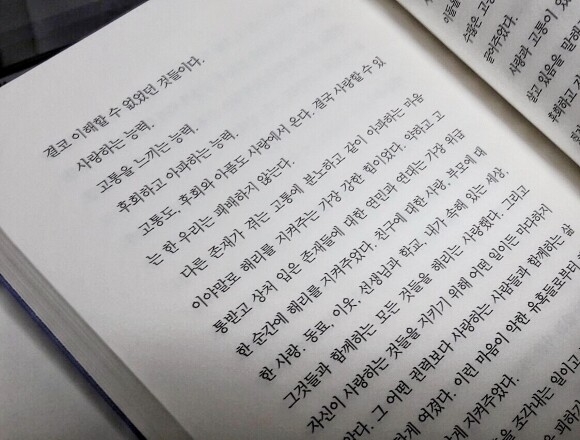 결코 이해할 수 없었던 것들이다.
사랑하는 능력.
고통을 느끼는 능력.
후회하고 아파하는 능력.
고통도, 후회와 아픔도 사랑에서 온다. 결국 사랑할 수 있
는 한 우리는 패배하지 않는다.
다른 존재가 겪는 고통에 분노하고 같이 아파하는 마음
이야말로 해리를 지켜주는 가장 강한 힘이었다. 약하고 고
통받고 상처 입은 존재들에 대한 연민과 연대는 가장 위급
한 순간에 해리를 지켜주었다. 친구에 대한 사랑. 부모에 대
한 사랑. 동료, 이웃, 선생님과 학교, 내가 속해 있는 세상.
그것들과 함께하는 모든 것들을 해리는 사랑했다. 그리고
자신이 사랑하는 것들을 지키기 위해 어떤 일이든 마다하지
않았다. 그 어떤 권력보다 사랑하는 사람들과 함께하는 삶
하게 여겼다. 이런 마음이 악한 유혹들로부터
게 지켜주었다.
을 조각내는 일이고
이들을
수많은 고통
들어주었다.
사랑과 고통이 있
살고 있음을 말해
후회하고